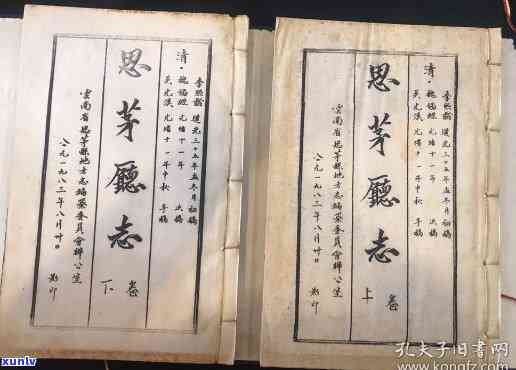 李熙齡 道光三十五年孟冬月初稿
清· 光緒十一年 次稿
吴光漢 光緒十一年中秋 手稿
思茅廳志
上卷
雲南省思茅縣地方志編纂委員會辦公室
公元一九八三年八月廿日 影印
李熙齡 道光三十五年孟冬月初稿
清· 光緒十一年 次稿
吴光漢 光緒十一年中秋 手稿
思茅廳志
下卷
雲南省思茅縣地方志編纂委員會辦公室
公元一九八三年八月廿日 影印
xunlv
孔夫子旧书网
kongfz.com